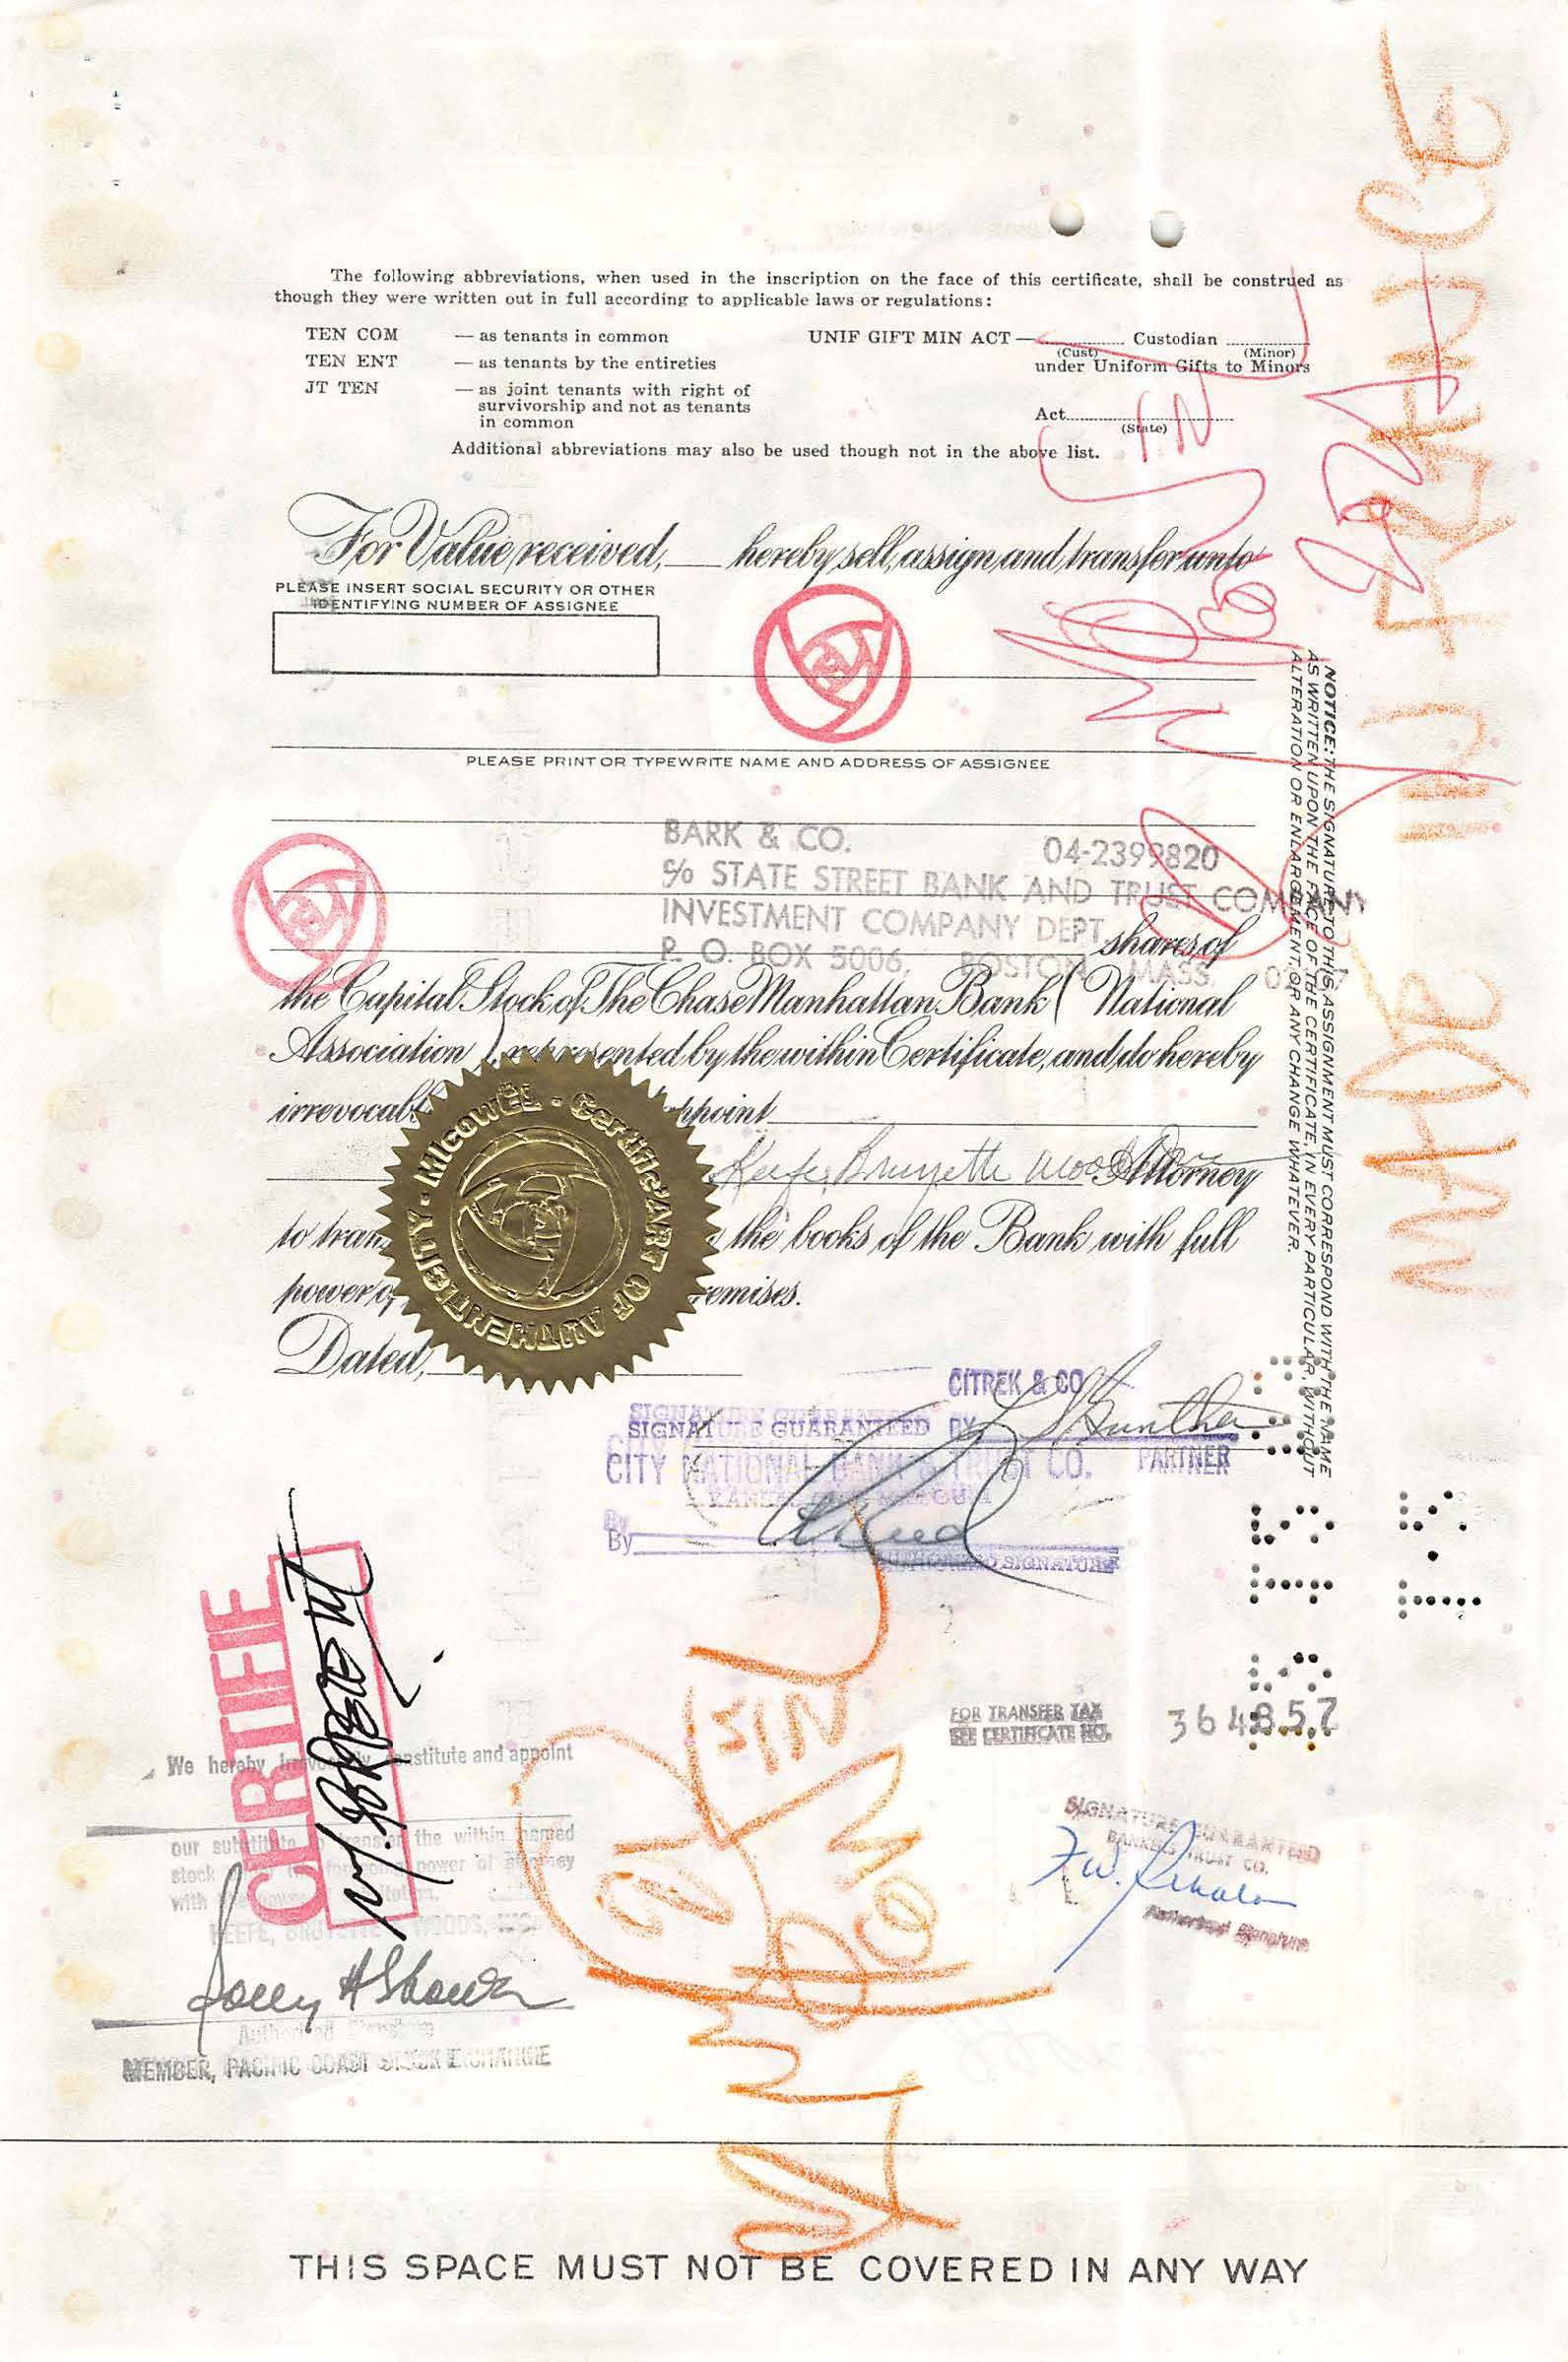 The following abbreviations, when used in the inscription on the face of this certificate, shall be construed as
though they were written out in full according to applicable laws or regulations:
TEN COM — as tenants in common
TEN ENT — as tenants by the entireties
JT TEN — as joint tenants with right of
survivorship and not as tenants
in common
UNIF GIFT MIN ACT — Custodian
(Cust) (Minor)
under Uniform Gifts to Minors
Act
(State)
Additional abbreviations may also be used though not in the above list.
For Value received, hereby sell, assign and transfer unto
PLEASE INSERT SOCIAL SECURITY OR OTHER
IDENTIFYING NUMBER OF ASSIGNEE
PLEASE PRINT OR TYPEWRITE NAME AND ADDRESS OF ASSIGNEE
BARK & CO. 04-2399820
% STATE STREET BANK AND TRUST COMPANY
INVESTMENT COMPANY DEPT
P. O. BOX 5006, BOSTON MASS.
shares of
the Capital Stock of The Chase Manhattan Bank (National
Association) represented by the within Certificate, and do hereby
appoint
Keefe, Attorney
the books of the Bank with full
Dated,
CERTIFIC'ART OF AUTHENTICITY
NOTICE: THE SIGNATURE TO THIS ASSIGNMENT MUST CORRESPOND WITH THE NAME
AS WRITTEN UPON THE FACE OF THE CERTIFICATE, IN EVERY PARTICULAR, WITHOUT
ALTERATION OR ENLARGEMENT, OR ANY CHANGE WHATEVER.
MADE IN FRANCE
CITREK & CO
SIGNATURE GUARANTEED BY
CITY NATIONAL BANK & TRUST CO. PARTNER
By
AUTHORIZED SIGNATURE
CERTIFIE
FOR TRANSFER TAX
SEE CERTIFICATE NO. 364857
We hereby irrevocably constitute and appoint
our substitute to transfer the within named
stock power of attorney
with
KEEFE, WOODS, INC.
Authorized Signature
MEMBER, PACIFIC COAST STOCK EXCHANGE
SIGNATURE GUARANTEED
BANKERS TRUST CO.
F.W.
Authorized Signature
THIS SPACE MUST NOT BE COVERED IN ANY WAY